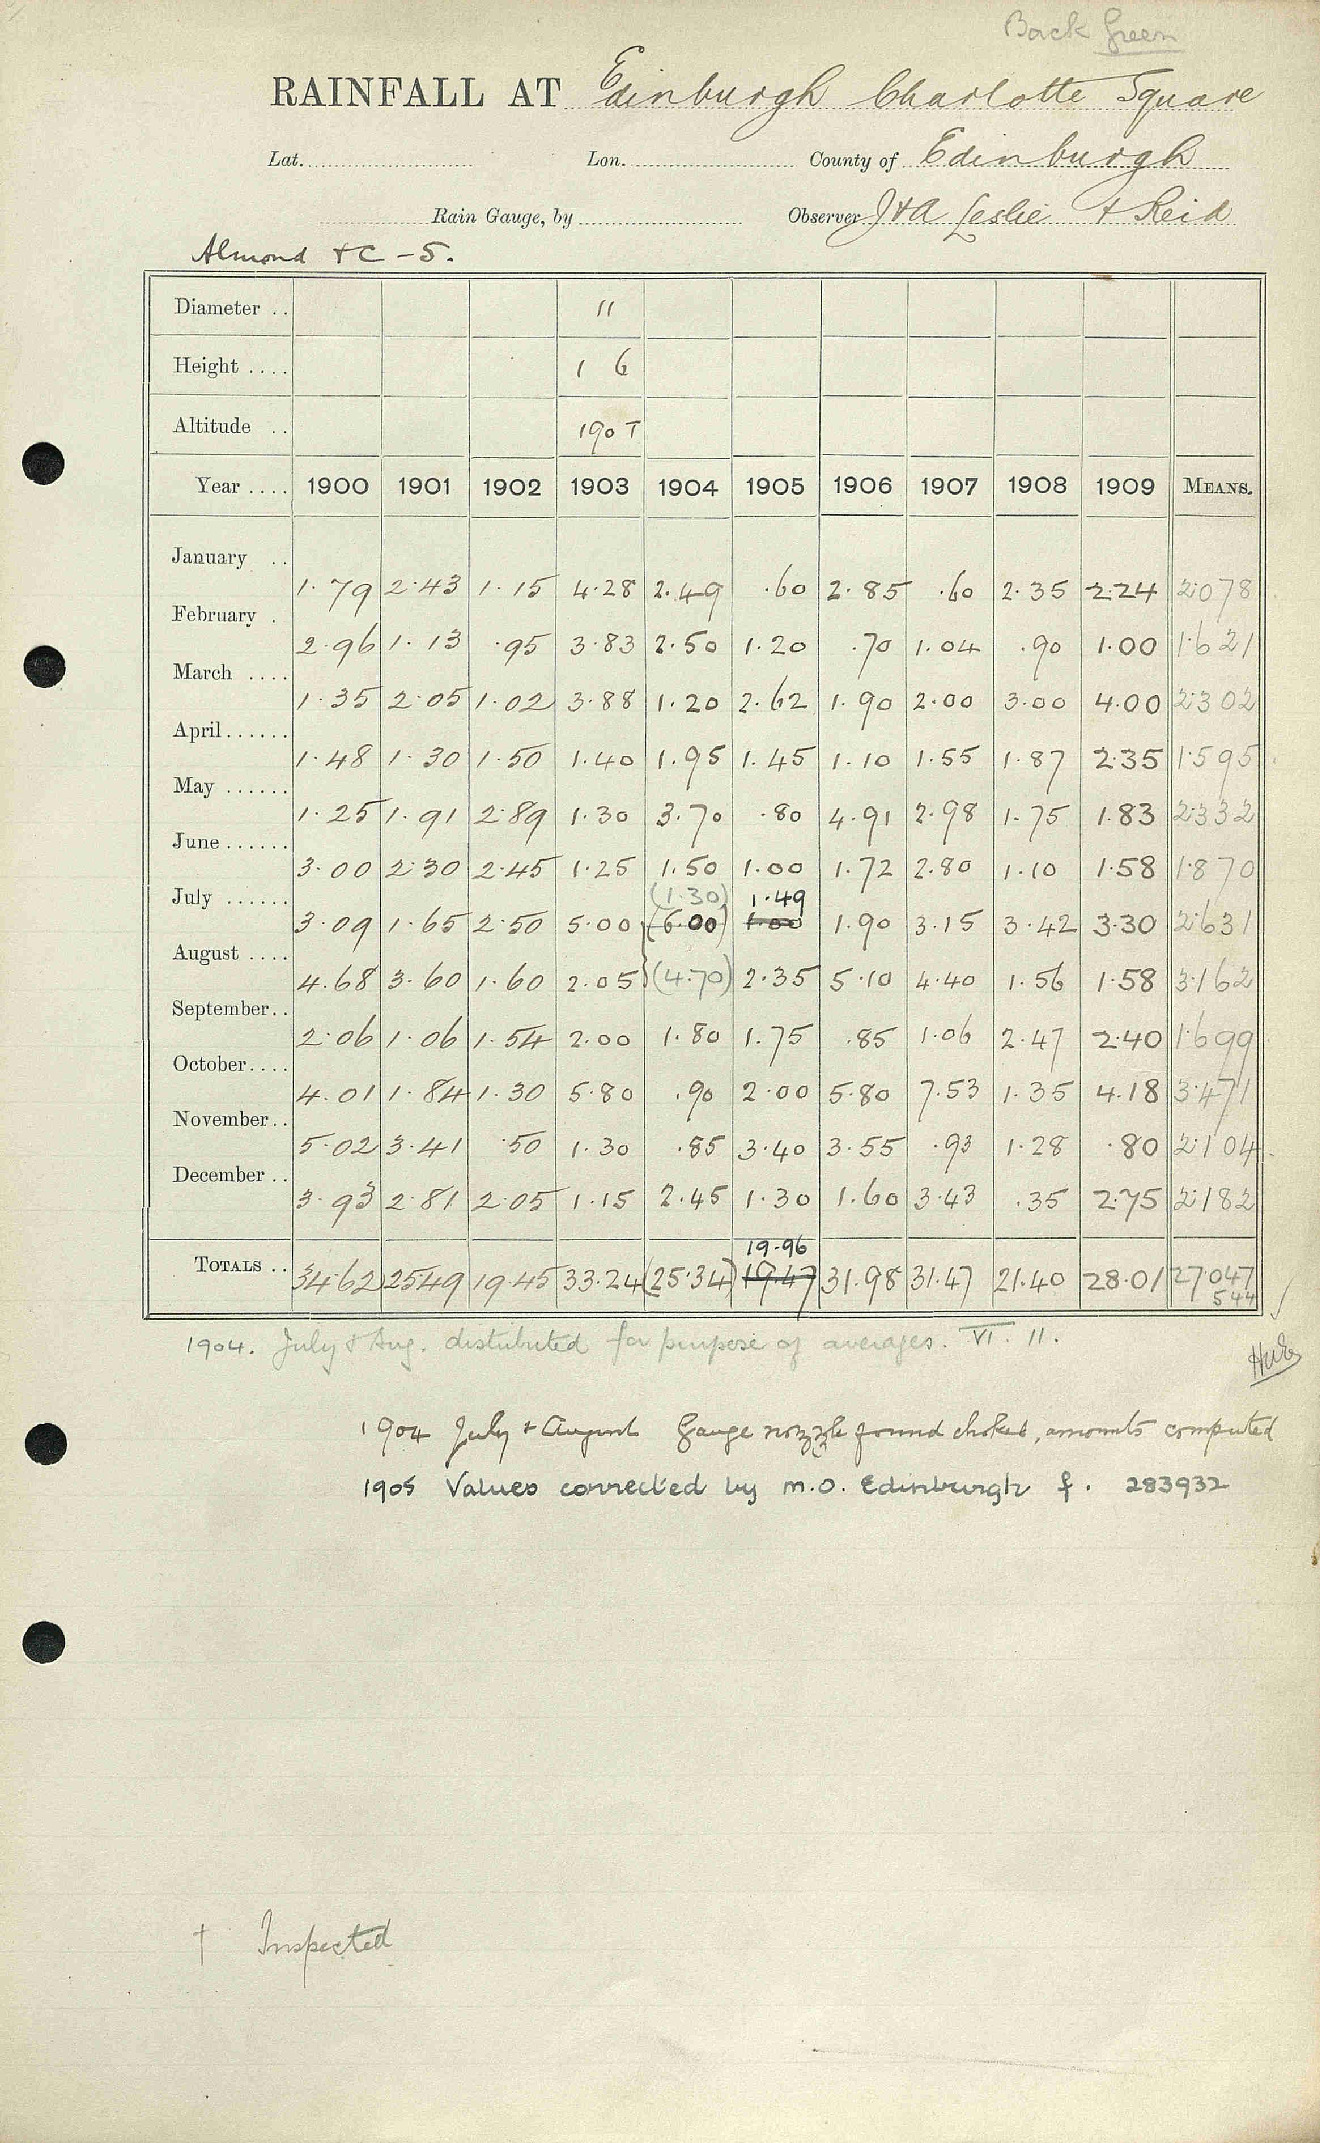 Back Green
RAINFALL AT Edinburgh Charlotte Square
Lat. Lon. County of Edinburgh
Rain Gauge, by Observer J & A Leslie & Reid
Almond & C - 5.
Diameter .. 11
Height .... 1 6
Altitude .. 190 T
Year .... 1900 1901 1902 1903 1904 1905 1906 1907 1908 1909 MEANS.
January .. 1.79 2.43 1.15 4.28 2.49 .60 2.85 .60 2.35 2.24 2.078
February . 2.96 1.13 .95 3.83 2.50 1.20 .70 1.04 .90 1.00 1.621
March .... 1.35 2.05 1.02 3.88 1.20 2.62 1.90 2.00 3.00 4.00 2.302
April ...... 1.48 1.30 1.50 1.40 1.95 1.45 1.10 1.55 1.87 2.35 1.595
May ...... 1.25 1.91 2.89 1.30 3.70 .80 4.91 2.98 1.75 1.83 2.332
June ...... 3.00 2.30 2.45 1.25 1.50 1.00 1.72 2.80 1.10 1.58 1.870
(1.30) 1.49
July ...... 3.09 1.65 2.50 5.00 (6.00) 1.00 1.90 3.15 3.42 3.30 2.631
August .... 4.68 3.60 1.60 2.05 (4.70) 2.35 5.10 4.40 1.56 1.58 3.162
September .. 2.06 1.06 1.54 2.00 1.80 1.75 .85 1.06 2.47 2.40 1.699
October .... 4.01 1.84 1.30 5.80 .90 2.00 5.80 7.53 1.35 4.18 3.471
November .. 5.02 3.41 .50 1.30 .85 3.40 3.55 .93 1.28 .80 2.104
December .. 3.93 2.81 2.05 1.15 2.45 1.30 1.60 3.43 .35 2.75 2.182
19.96
TOTALS .. 34.62 25.49 19.45 33.24 (25.34) 19.47 31.98 31.47 21.40 28.01 27.047
544
1904. July & Aug. distributed for purpose of averages. VI. 11.
1904 July & August Gauge nozzle found choked, amounts computed
1905 Values corrected by M.O. Edinburgh f. 283932
† Inspected